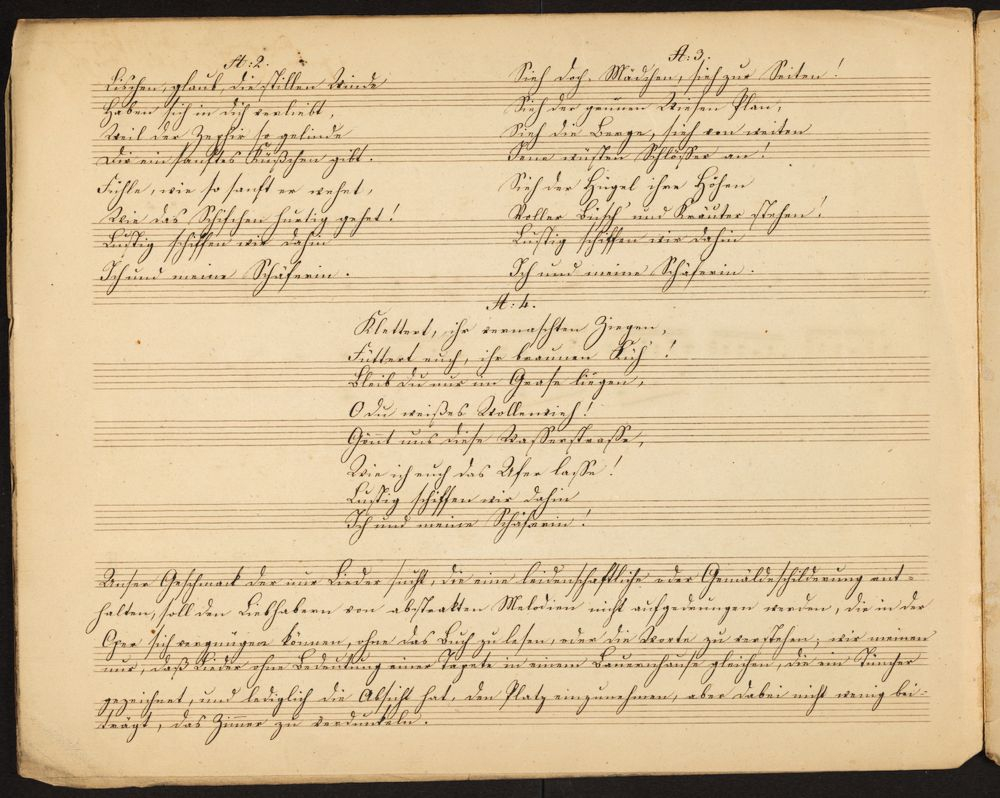 A: 2.
Lischen, glaub, die stillen Winde
Haben sich in dich verliebt,
Weil der Zephir so gelinde
Dir ein sanftes Küßchen gibt.
Fühle, wie so sanft er wehet,
Wie das Schifchen hurtig gehet!
Lustig schiffen wir dahin
Ich und meine Schäferin.
A: 3.
Sieh doch, Mädchen, sieh zur Seiten!
Sieh der grünen Wiesen Plan,
Sieh die Berge, sieh von weiten
Jene wüsten Schlösser an!
Sieh der Hügel ihre Höhen
Voller Büsch' und Kräuter stehen!
Lustig schiffen wir dahin
Ich und meine Schäferin.
A: 4.
Klettert, ihr vernaschten Ziegen,
Füttert euch, ihr braunen Küh'!
Bleib du nur im Grase liegen,
O du weißes Wollenvieh!
Gönnt uns diese Wasserstrasse,
Wie ich euch das Ufer lasse!
Lustig schiffen wir dahin
Ich und meine Schäferin!
Unser Geschmack der nur Lieder sucht, die eine leidenschaftliche oder Gemäldeschilderung ent=
halten, soll den Liebhabern von abstrakten Melodien nicht aufgedrungen werden, die in der
Oper sich vergnügen können, ohne das Buch zu lesen, oder die Worte zu verstehen; wir meinen
nur, daß Lieder ohne Bedeutung einer Tapete in einem Bauernhause gleichen, die ein Tüncher
gezeichnet, und lediglich die Absicht hat, den Platz einzunehmen, aber dabei nicht wenig bei=
trägt, das Zimer zu verdunkeln.